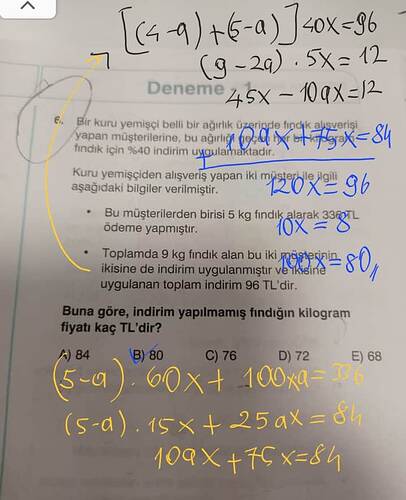 [(4-a)+(5-a)]40x=96
(9-2a).5x=12
45x-10ax=12
Deneme
10ax+75x=84
+
120x=96
10x=8
100x=80
6. Bir kuru yemişçi belli bir ağırlık üzerinde fındık alışverişi
yapan müşterilerine, bu ağırlığı geçen her bir kilogram
fındık için %40 indirim uygulamaktadır.
Kuru yemişçiden alışveriş yapan iki müşteri ile ilgili
aşağıdaki bilgiler verilmiştir.
• Bu müşterilerden birisi 5 kg fındık alarak 336 TL
ödeme yapmıştır.
• Toplamda 9 kg fındık alan bu iki müşterinin
ikisine de indirim uygulanmıştır ve ikisine
uygulanan toplam indirim 96 TL'dir.
Buna göre, indirim yapılmamış fındığın kilogram
fiyatı kaç TL'dir?
A) 84 B) 80 C) 76 D) 72 E) 68
(5-a).60x+100xa=336
(5-a).15x+25ax=84
10ax+75x=84